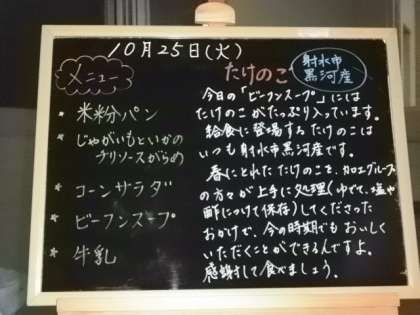 10月25日(火)
メニュー
* 米粉パン
* じゃがいもといかの
チリソースがらめ
* コーンサラダ
* ビーフンスープ
* 牛乳
たけのこ
射水市
黒河産
今日の「ビーフンスープ」には
たけのこがたっぷり入っています。
給食に登場するたけのこは
いつも射水市黒河産です。
春にとれたたけのこを、加工グループ
の方々が上手に処理(ゆでて、塩や
酢につけて保存)してくださった
おかげで、今の時期でもおいしく
いただくことができるんですよ。
感謝して食べましょう。